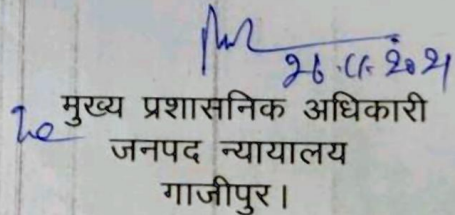 26.11.2021
मुख्य प्रशासनिक अधिकारी
जनपद न्यायालय
गाजीपुर।